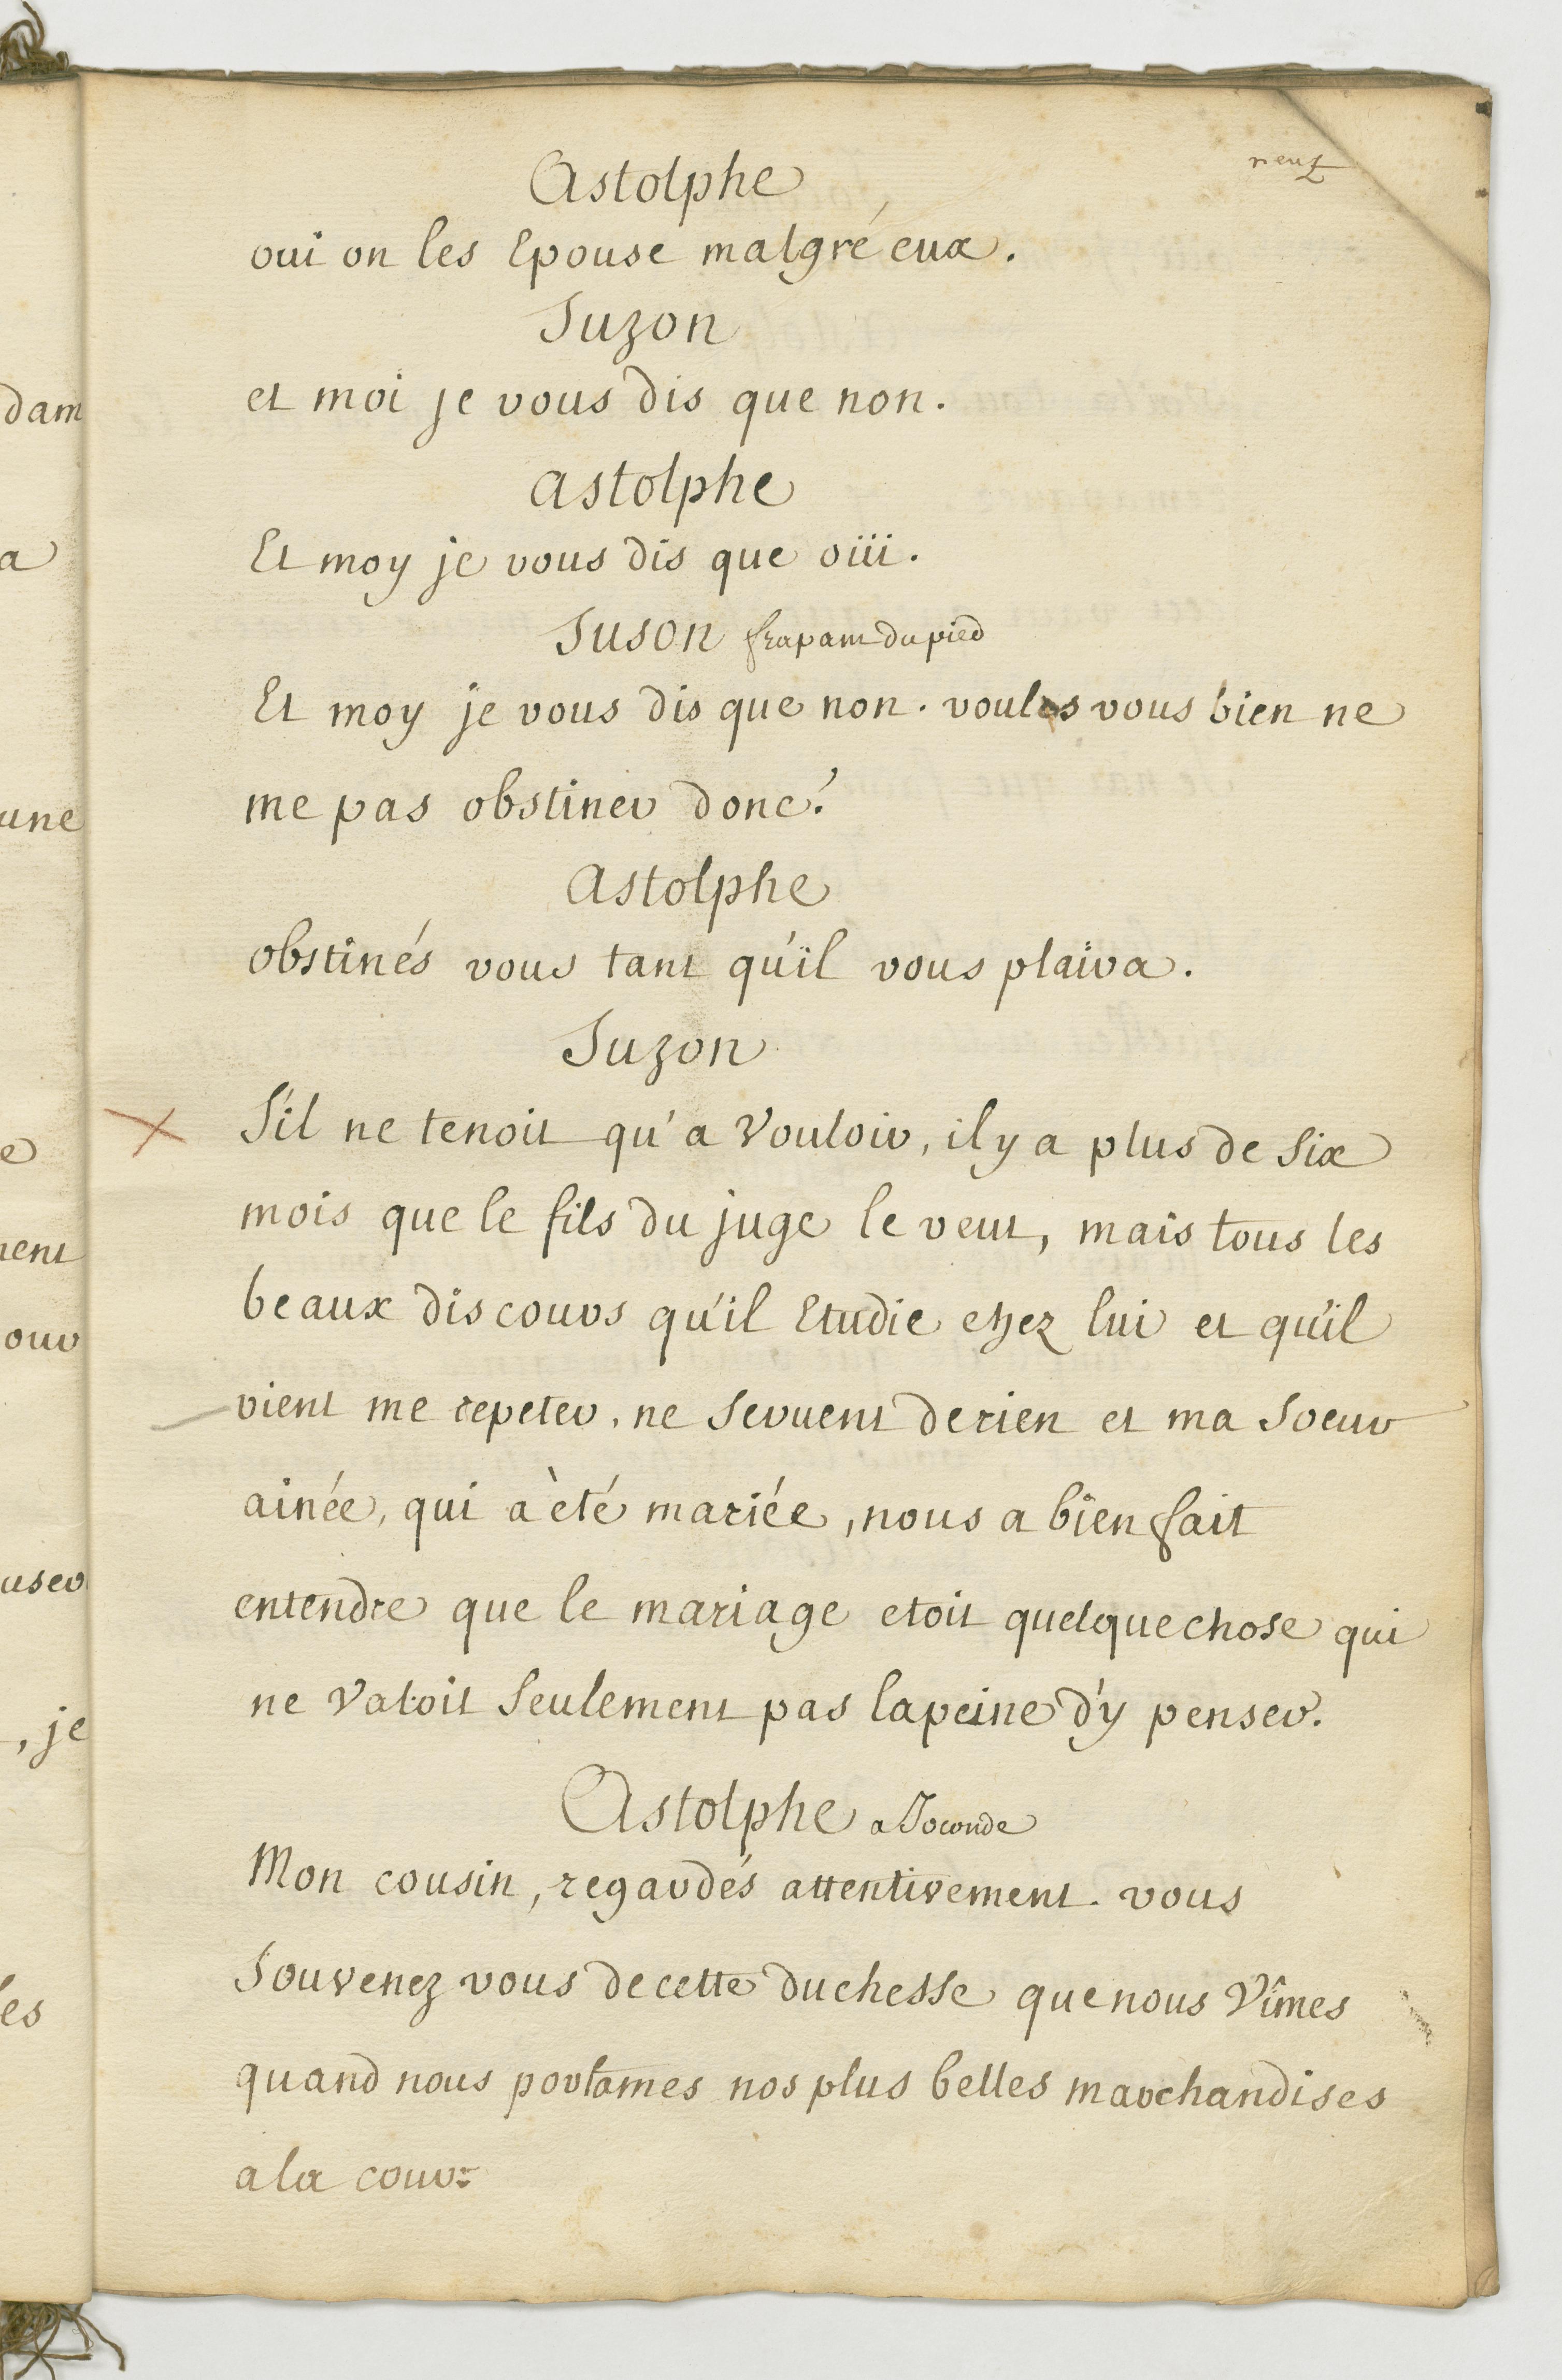 neuf
Astolphe
oui on les Epouse malgré eux.
Suzon
et moi je vous dis que non.
astolphe
Et moy je vous dis que oüi.
Suson frapant du pied
Et moy je vous dis que non. voulés vous bien ne
me pas obstiner donc?
astolphe
obstinés vous tant qu'il vous plaira.
Suzon
S'il ne tenoit qu'a Vouloir, il y a plus de Six
mois que le fils du juge le veut, mais tous les
beaux discours qu'il Etudie chez lui et qu'il
vient me repeter, ne Servent de rien et ma Soeur
ainée, qui à été mariée, nous a bien fait
entendre que le mariage etoit quelque chose qui
ne Valoit Seulement pas la peine d'y penser.
Astolphe a Joconde
Mon cousin, regardés attentivement. vous
Souvenez vous de cette duchesse que nous Vîmes
quand nous portames nos plus belles marchandises
a la cour:
dam
a
une
e
nent
our
user
, je
les